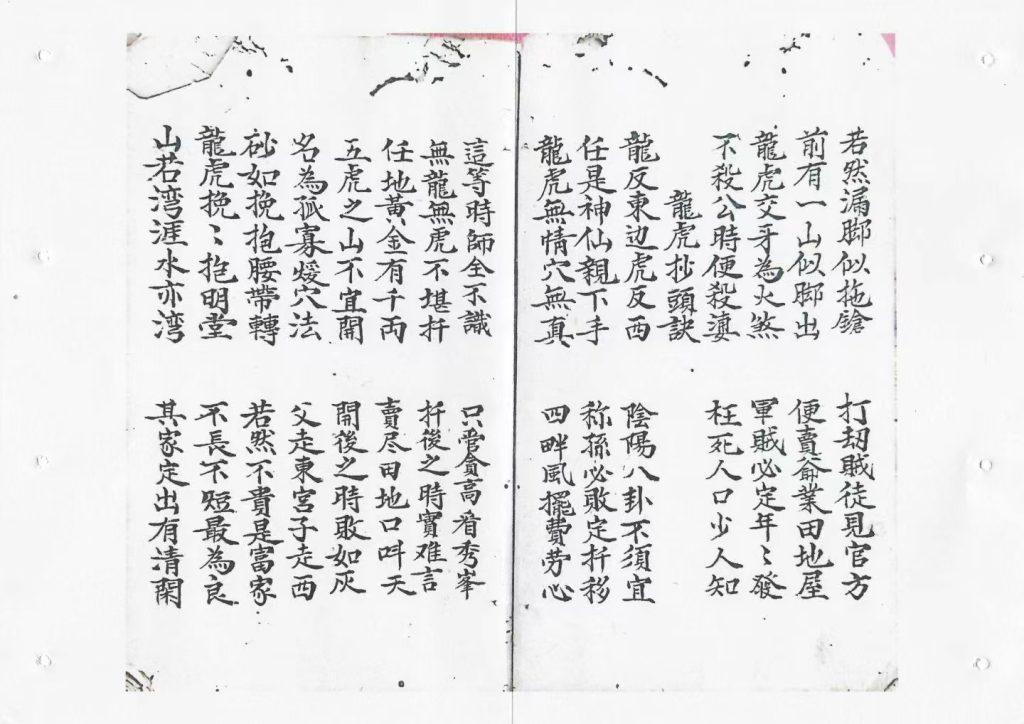 若然漏脚似拖鎗 打刼賊徒見官方
前有一山似脚出 便賣爺業田地屋
龍虎交牙為火煞 軍賊必定年〻發
不殺公時便殺婆 枉死人口少人知
龍虎抄頭訣
龍反東边虎反西 陰陽八卦不須宜
任是神仙親下手 称孫必敗定扦移
龍虎無情穴無真 四畔風擺費劳心
這等時師全不識 只愛貪高看秀峯
無龍無虎不堪扦 扦後之時實难言
任地黃金有千両 賣尽田地口呌天
五虎之山不宜開 開後之時敗如灰
名為孤寡煖穴法 父走東宮子走西
砂如挽抱腰帶轉 若然不貴是富家
龍虎挽〻抱明堂 不長不短最為良
山若湾涯水亦湾 其家定出有清閑